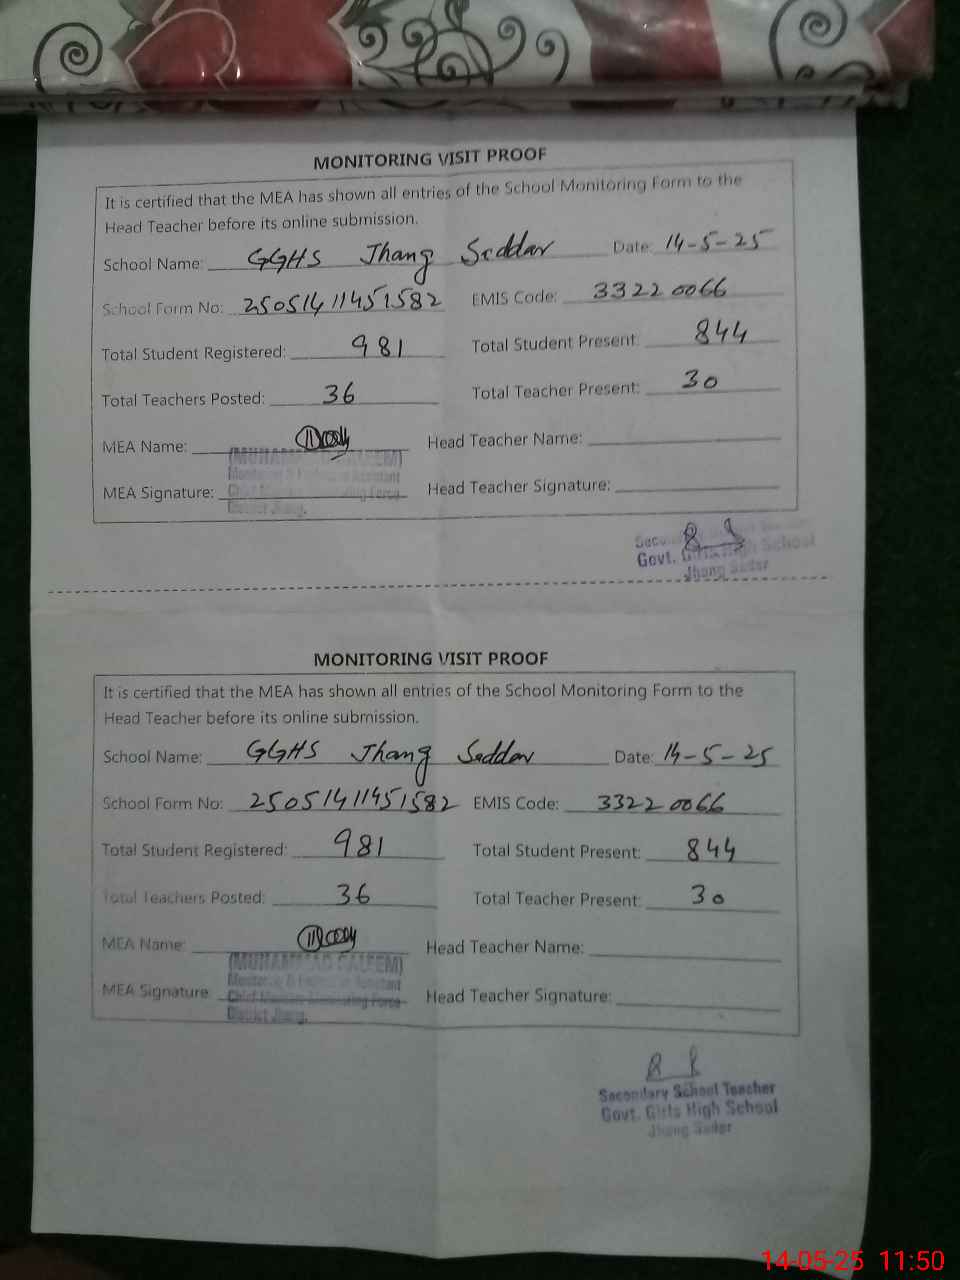 MONITORING VISIT PROOF
It is certified that the MEA has shown all entries of the School Monitoring Form to the
Head Teacher before its online submission.
School Name: GGHS Jhang Saddar Date: 14-5-25
School Form No: 25051411451582 EMIS Code: 33220066
Total Student Registered: 981 Total Student Present: 844
Total Teachers Posted: 36 Total Teacher Present: 30
MEA Name: Head Teacher Name:
(MUHAMMAD SALEEM)
Monitoring & Assistant
MEA Signature: Head Teacher Signature:
Chief Force
District Jhang.
Govt. Girls High School
Jhang Sadar
MONITORING VISIT PROOF
It is certified that the MEA has shown all entries of the School Monitoring Form to the
Head Teacher before its online submission.
School Name: GGHS Jhang Saddar Date: 14-5-25
School Form No: 25051411451582 EMIS Code: 33220066
Total Student Registered: 981 Total Student Present: 844
Total Teachers Posted: 36 Total Teacher Present: 30
MEA Name: Head Teacher Name:
(MUHAMMAD SALEEM)
Monitoring & Assistant
MEA Signature: Head Teacher Signature:
Chief Monitoring Force
District Jhang.
Secondary School Teacher
Govt. Girls High School
Jhang Sadar
14-05-25 11:50